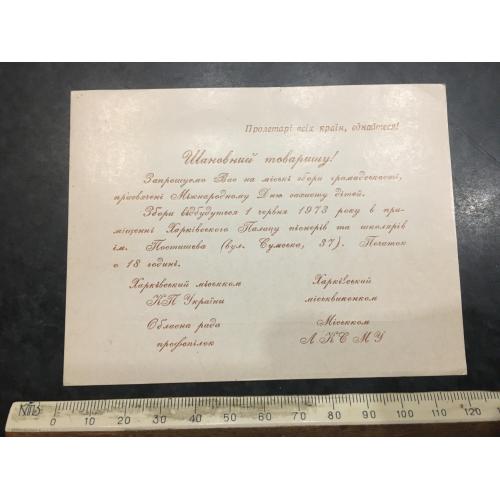 Пролетарі всіх країн, єднайтеся!
Шановний товаришу!
Запрошуємо Вас на міські збори громадськості,
присвячені Міжнародному Дню захисту дітей.
Збори відбудуться 1 червня 1973 року в при-
міщенні Харківського Палацу піонерів та школярів
ім. Постишева (вул. Сумська, 37). Початок
о 18 годині.
Харківський міськком
КП України
Харківський
міськвиконком
Обласна рада
профспілок
Міськком
ЛКСМУ
0 10 20 30 40 50 60 70 80 90 100 110 120